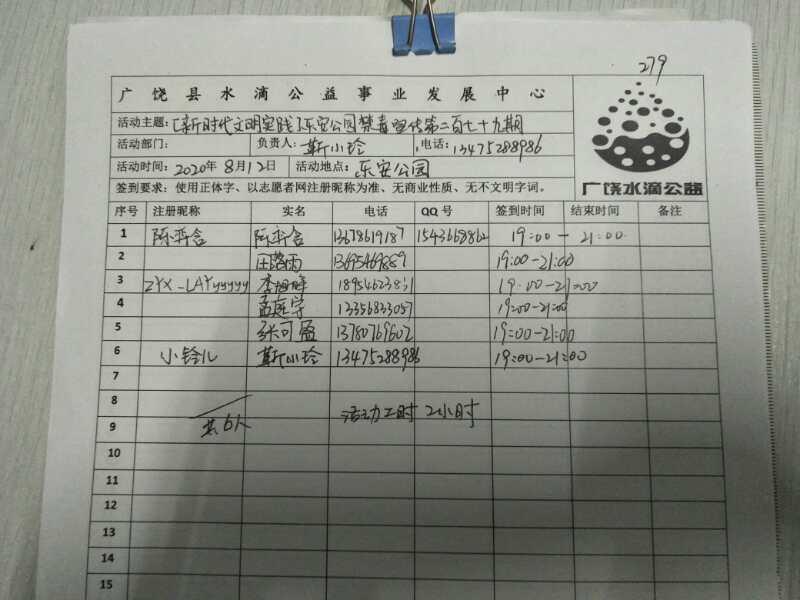 279
广饶县水滴公益事业发展中心
活动主题:[新时代文明实践]乐安公园禁毒宣传第二百七十九期
活动部门: 负责人: 靳小玲 电话: 13475288986
活动时间: 2020年8月12日 活动地点: 乐安公园
签到要求: 使用正体字、以志愿者网注册昵称为准、无商业性质、无不文明字词。
广饶水滴公益
序号 注册昵称 实名 电话 QQ号 签到时间 结束时间 备注
1 陈弈含 陈弈含 13678619187 1543668862 19:00 - 21:00
2 13695469889 19:00-21:00
3 ZYX-LAYyyyyy 18954623831 19:00-21:00
4 孟莲学 13356833057 19:00-21:00
5 张可盈 13780769602 19:00-21:00
6 小铃儿 靳小玲 13475288986 19:00-21:00
7
8
共6人 活动工时 2小时
9
10
11
12
13
14
15